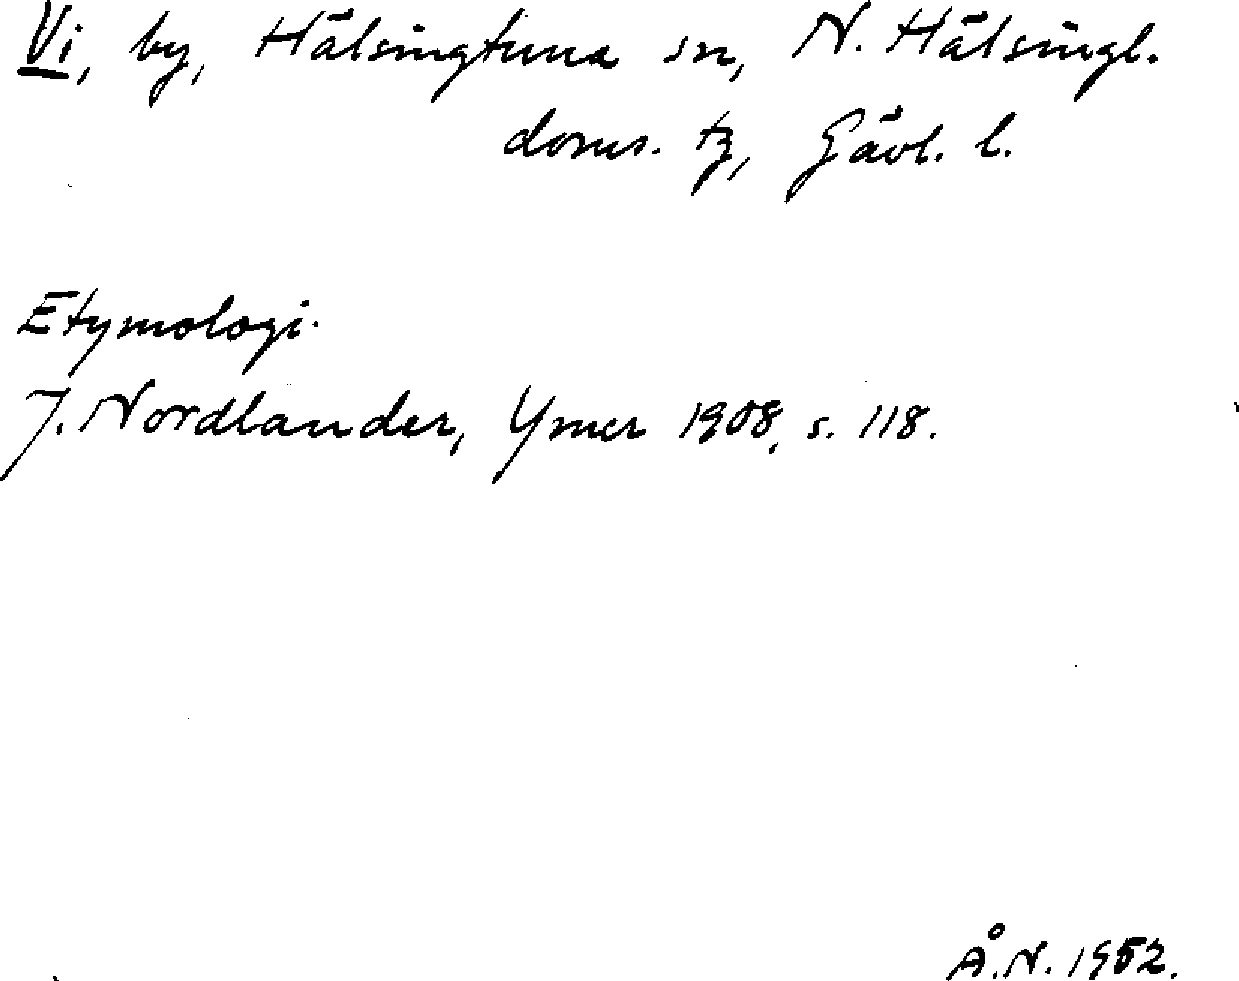 Vi, by, Hälsingtuna sn, N. Hälsingl.
doms. tg, Gävl. l.
Etymologi.
J. Nordlander, Ymer 1908, s. 118.
Å.N. 1952.